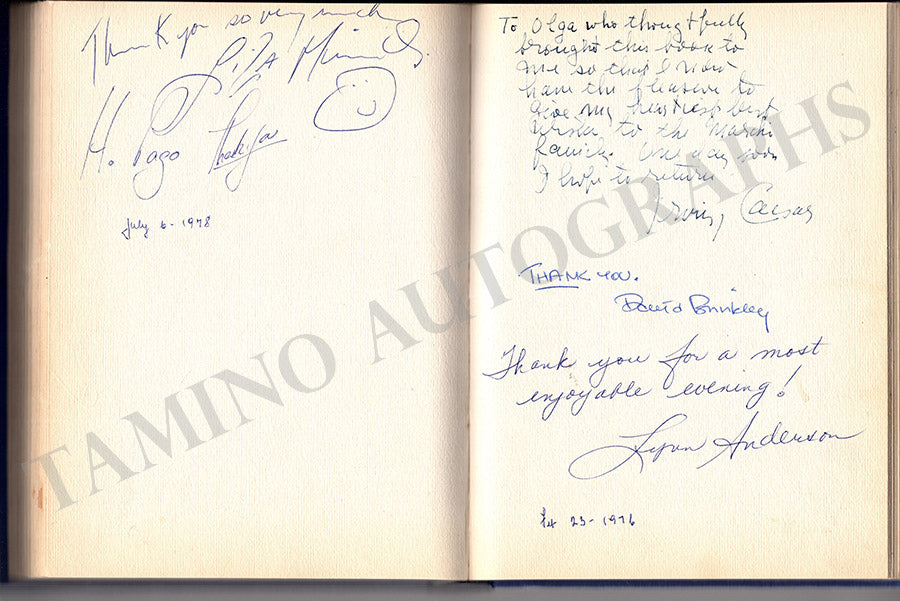 Thank you so very much
Liza Minnelli
H. Pago Thank you
July 6 - 1978
To Olga who thoughtfully
brought this book to
me so that I now
have the pleasure to
give my heartiest best
wishes to the
family. One day soon
I hope to return
Irving Caesar
THANK YOU.
David Brinkley
Thank you for a most
enjoyable evening!
Lynn Anderson
23 - 1976
TAMINO AUTOGRAPHS